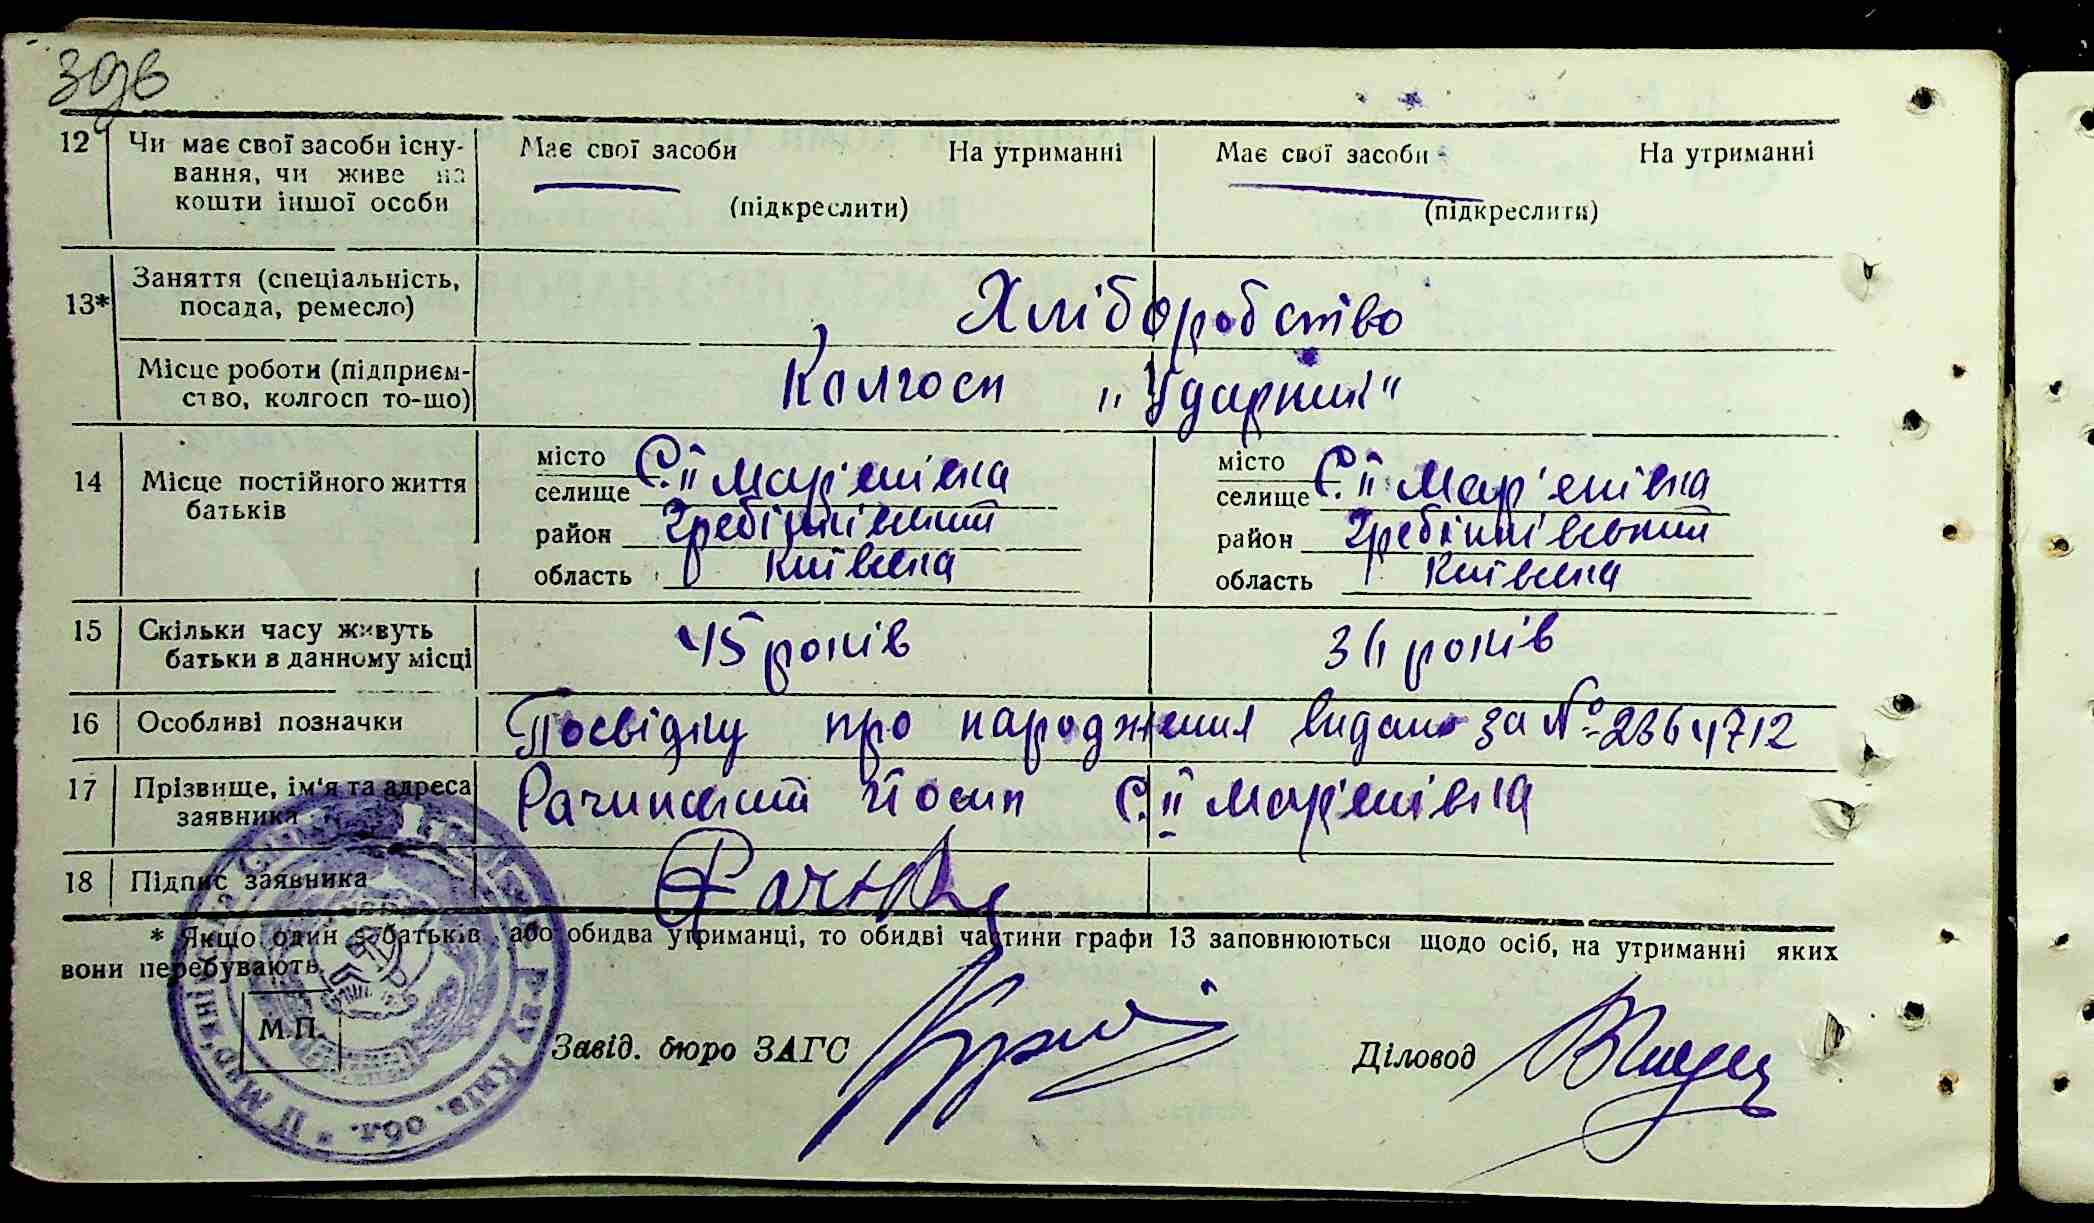 39в
12 Чи має свої засоби існу- Має свої засоби На утриманні Має свої засоби На утриманні
вання, чи живе на
кошти іншої особи (підкреслити) (підкреслити)
13* Заняття (спеціальність,
посада, ремесло) Хліборобство
Місце роботи (підприєм-
ство, колгосп то-що) Колгосп „Ударник"
14 Місце постійного життя
батьків
місто С. ІІ Мар'янівка місто С. ІІ Мар'янівка
селище селище
район Гребінківський район Гребінківський
область Київська область Київська
15 Скільки часу живуть 45 років 34 років
батьки в данному місці
16 Особливі позначки Посвідку про народження видано за № 2364712
17 Прізвище, ім'я та адреса Рачинський Йосип С. ІІ Мар'янівка
заявника
18 Підпис заявника
* Якщо один з батьків або обидва утриманці, то обидві частини графи 13 заповнюються щодо осіб, на утриманні яких
вони перебувають.
М.П.
Завід. бюро ЗАГС Діловод